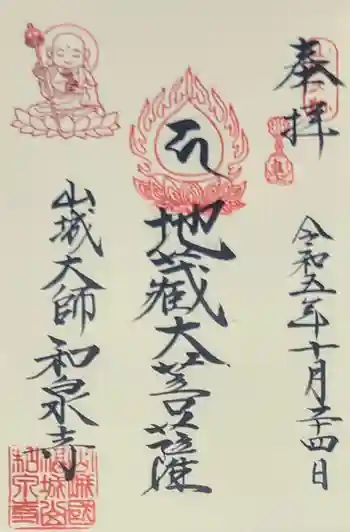 奉拝
令和五年十月二十四日
地蔵大菩薩
山城大師 和泉寺